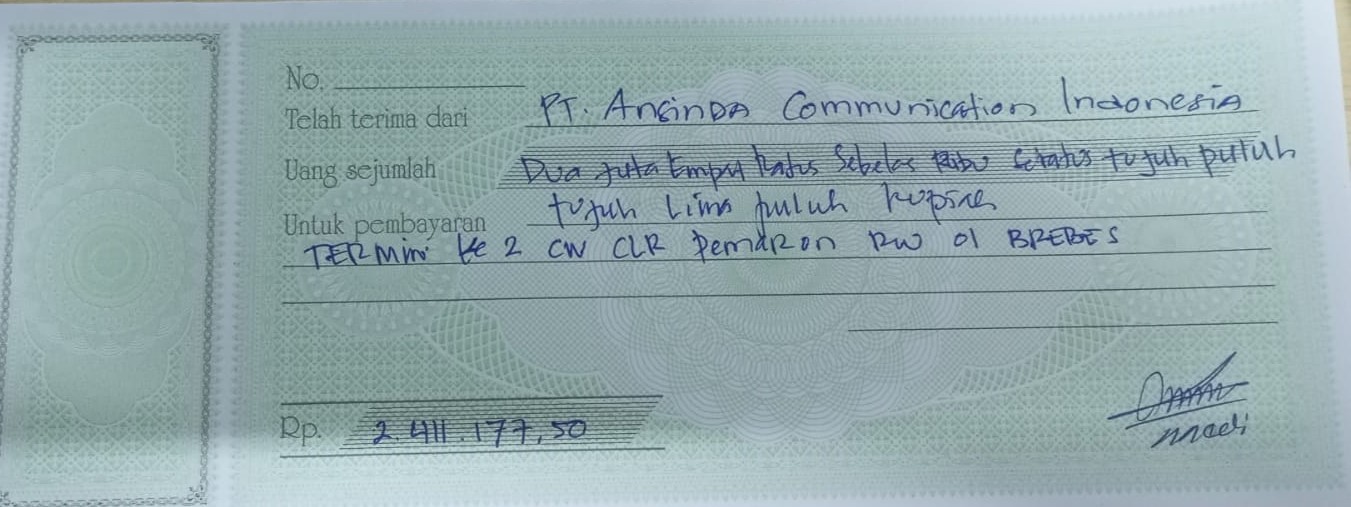 No.
Telah terima dari PT. Aninda Communication Indonesia
Uang sejumlah Dua juta Empat Ratus Sebelas Ribu Seratus tujuh puluh
Untuk pembayaran tujuh Lima puluh Rupiah
TERMin ke 2 CW CLR Pemaron RW 01 BREBES
Rp. 2.411.177,50